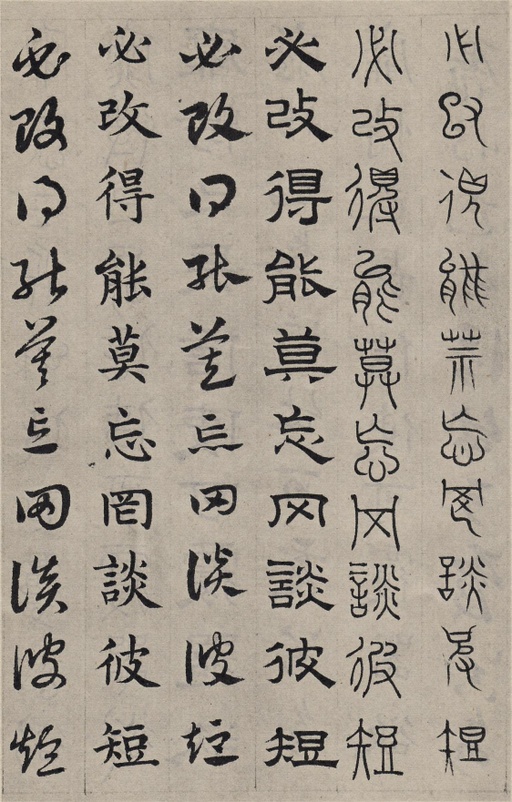 必改得能莫忘罔談彼短
必改得能莫忘罔談彼短
必改得能莫忘罔談彼短
必改得能莫忘罔談彼短
必改得能莫忘罔談彼短
必改得能莫忘罔談彼短